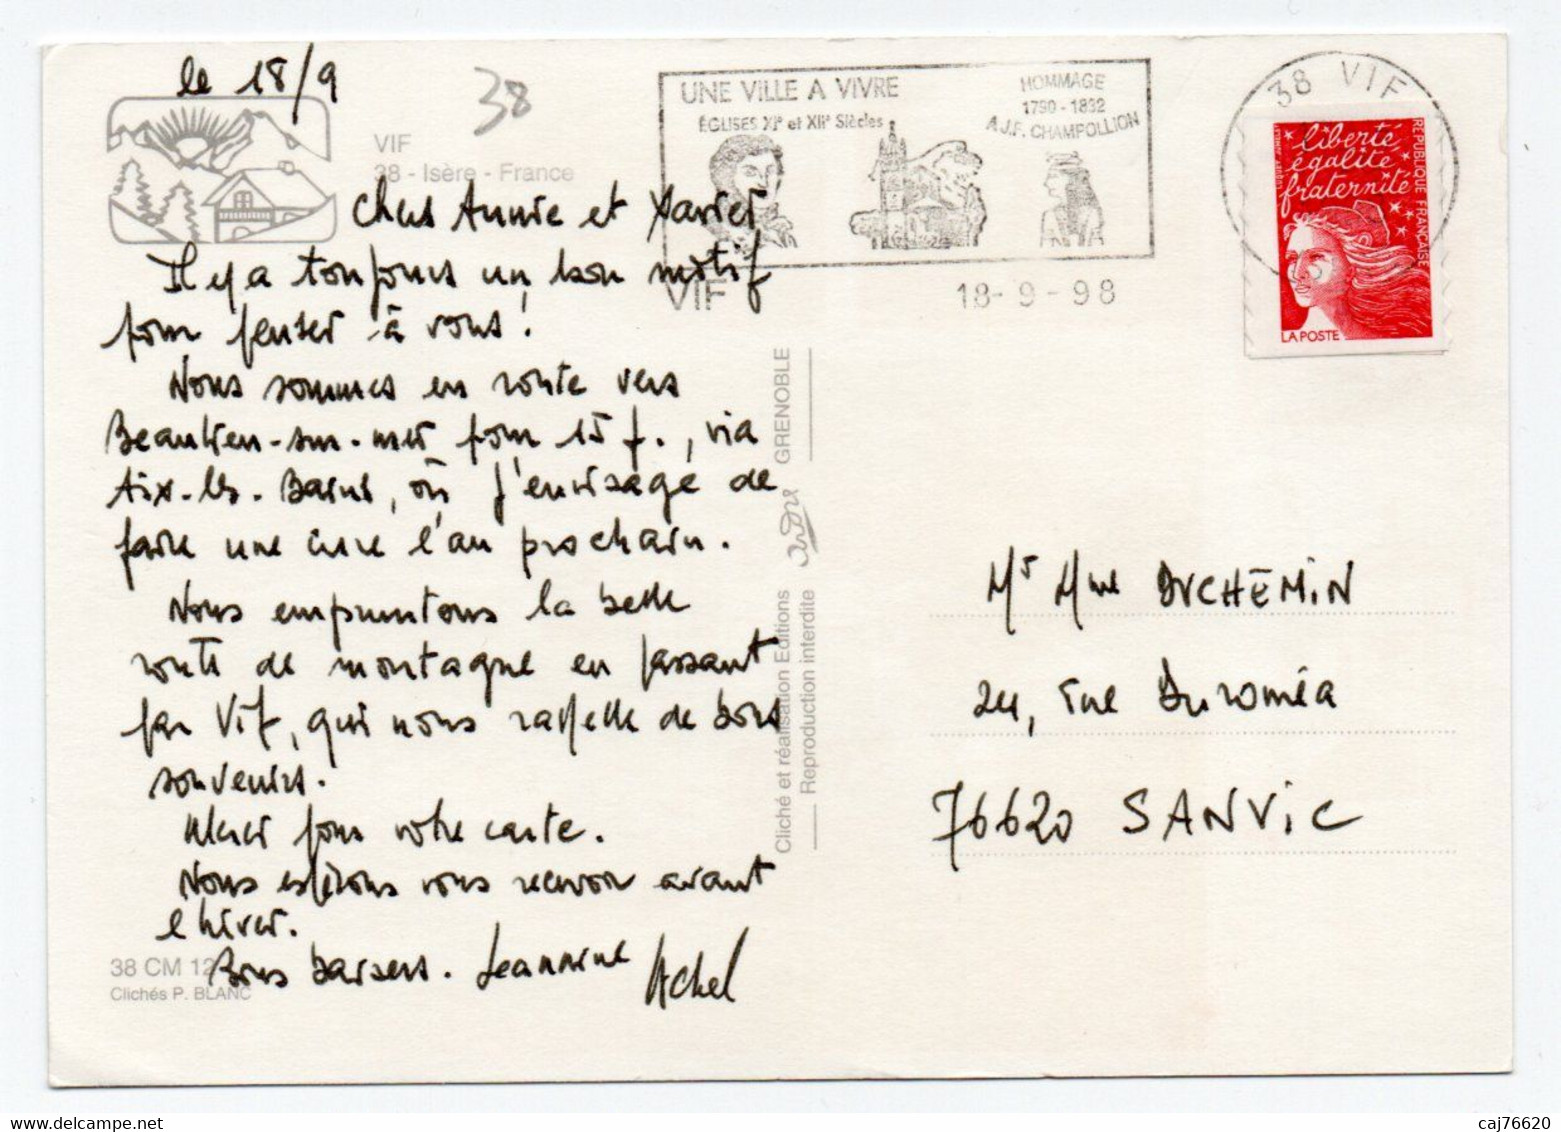 le 18/9
38
VIF
38 - Isère - France
Chers Annie et Xavier
Il y a toujours un bon motif
pour penser à vous !
Nous sommes en route vers
Beaulieu-sur-mer pour 15 j., via
Aix-les-Bains, où j'envisage de
faire une cure l'an prochain.
Nous empruntons la belle
route de montagne en passant
par Vif, qui nous rappelle de bons
souvenirs.
Merci pour votre carte.
Nous espérons vous recevoir avant
l'hiver.
Bons baisers. Jeannine
38 CM 12
Clichés P. BLANC
Cliché et réalisation Editions André GRENOBLE
Reproduction interdite
UNE VILLE A VIVRE
ÉGLISES XIe et XIIe Siècles
HOMMAGE
1790 - 1832
A J.F. CHAMPOLLION
VIF
18-9-98
38 VIF
liberté
égalité
fraternité
RÉPUBLIQUE FRANÇAISE
LA POSTE
Mr Mme DUCHEMIN
24, rue Duroméa
76620 SANVIC
caj76620